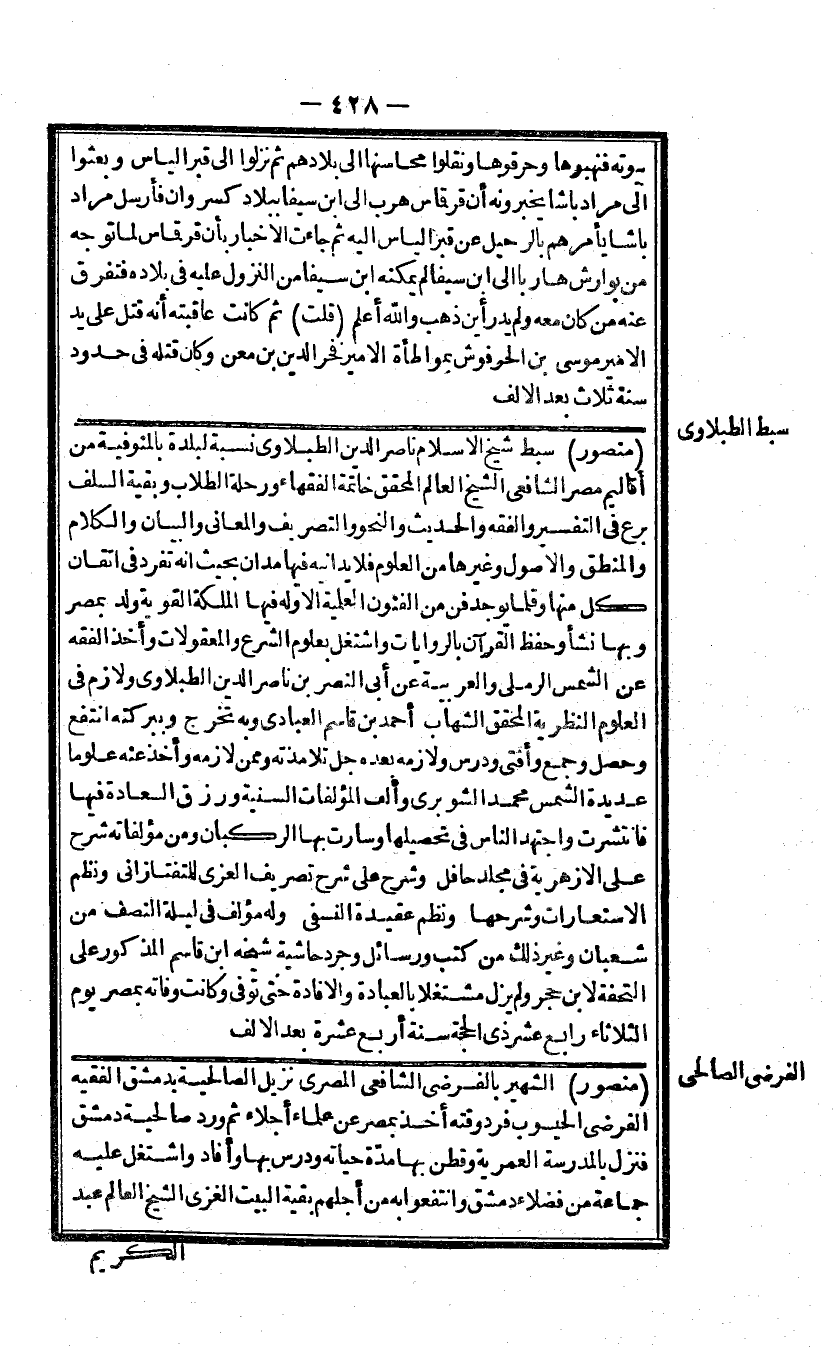 — ٤٢٨ —
بيوته فنهبوها وحرقوها ونقلوا محاسنها الى بلادهم ثم نزلوا الى قبر الياس وبعثوا
الى مراد باشا يخبرونه أن قرقاس هرب الى ابن سيفا ببلاد كسروان فأرسل مراد
باشا يأمرهم بالرحيل عن قبر الياس اليه ثم جاءت الاخبار بأن قرقاس لما توجه
من بوارش هاربا الى ابن سيفا لم يمكنه ابن سيفا من النزول عليه فى بلاده فتفرق
عنه من كان معه ولم يدر أين ذهب والله أعلم (قلت) ثم كانت عاقبته أنه قتل على يد
الامير موسى بن الحرفوش بمواطأة الامير فخر الدين بن معن وكان قتله فى حدود
سنة ثلاث بعد الالف
سبط الطبلاوى
(منصور) سبط شيخ الاسلام ناصر الدين الطبلاوى نسبة لبلدة بالمنوفية من
أقاليم مصر الشافعى الشيخ العالم المحقق خاتمة الفقهاء ورحلة الطلاب وبقية السلف
برع فى التفسير والفقه والحديث والنحو والتصريف والمعانى والبيان والكلام
والمنطق والاصول وغيرها من العلوم فلا يدانيه فيها مدان بحيث انه تفرد فى اتقان
كل منها وقلما يوجد فن من الفنون العلمية الا وله فيها الملكة القوية ولد بمصر
وبها نشأ وحفظ القرآن بالروايات واشتغل بعلوم الشرع والمعقولات وأخذ الفقه
عن الشمس الرملى والعربية عن أبى النصر بن ناصر الدين الطبلاوى ولازم فى
العلوم النظرية المحقق الشهاب أحمد بن قاسم العبادى وبه تخرج وببركته انتفع
وحصل وجمع وأفتى ودرس ولازمه بعده جل تلامذته وممن لازمه وأخذ عنه علوما
عديدة الشمس محمد الشوبرى وألف المؤلفات السنية ورزق السعادة فيها
فانتشرت واجتهد الناس فى تحصيلها وسارت بها الركبان ومن مؤلفاته شرح
على الازهرية فى مجلد حافل وشرح على شرح تصريف العزى للتفتازانى ونظم
الاستعارات وشرحها ونظم عقيدة النسفى وله مؤلف فى ليلة النصف من
شعبان وغير ذلك من كتب ورسائل وجرد حاشية شيخه ابن قاسم المذكور على
التحفة لابن حجر ولم يزل مشتغلا بالعبادة والافادة حتى توفى وكانت وفاته بمصر يوم
الثلاثاء رابع عشر ذى الحجة سنة أربع عشرة بعد الالف
الفرضى الصالحى
(منصور) الشهير بالفرضى الشافعى المصرى نزيل الصالحية بدمشق الفقيه
الفرضى الحيسوب فرد وقته أخذ بمصر عن علماء أجلاء ثم ورد صالحية دمشق
فنزل بالمدرسة العمرية وقطن بها مدة حياته ودرس بها وأفاد واشتغل عليه
جماعة من فضلاء دمشق وانتفعوا به من أجلهم بقية البيت الغزى الشيخ العالم عبد
الكريم